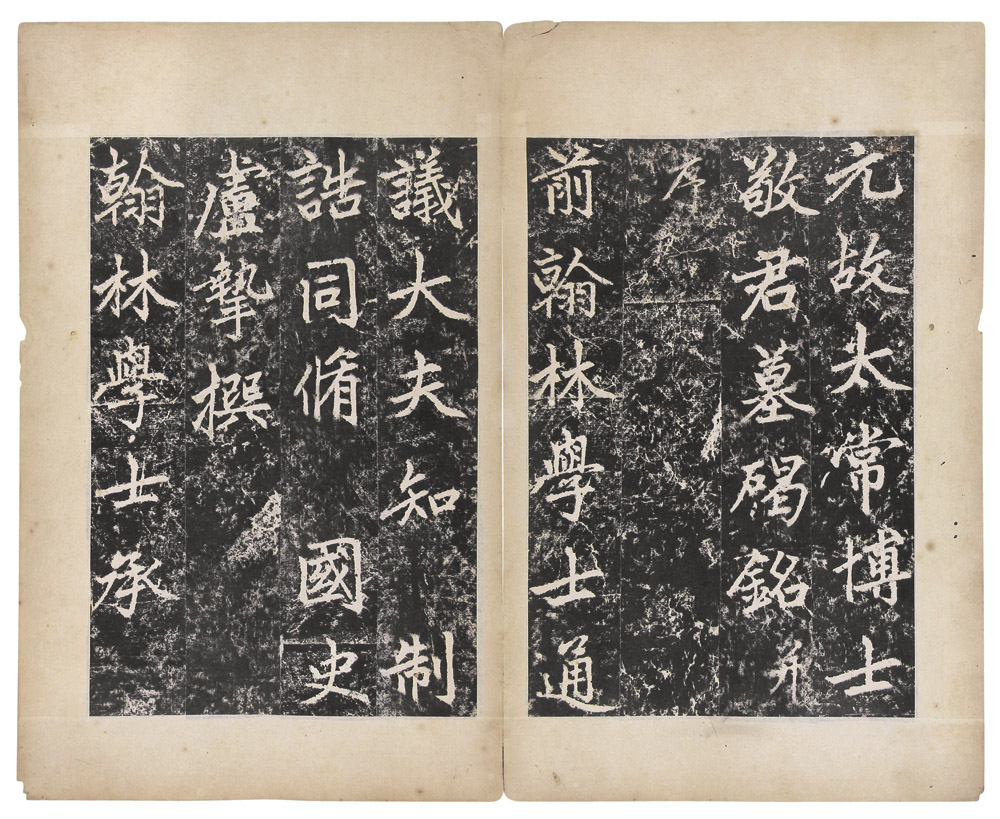 元故太常博士
敬君墓碣銘并
序
前翰林學士通
議大夫知制
誥同脩國史
盧摯撰
翰林學士承